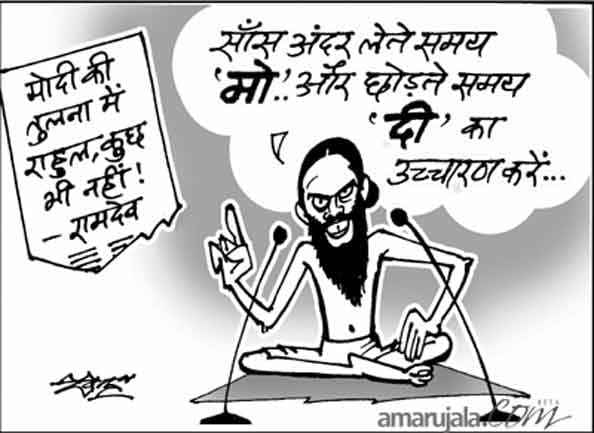 मोदी की
तुलना में
राहुल, कुछ
भी नहीं!
- रामदेव
साँस अंदर लेते समय
'मो'.. और छोड़ते समय
'दी' का
उच्चारण करें...
amarujala.com
BETA